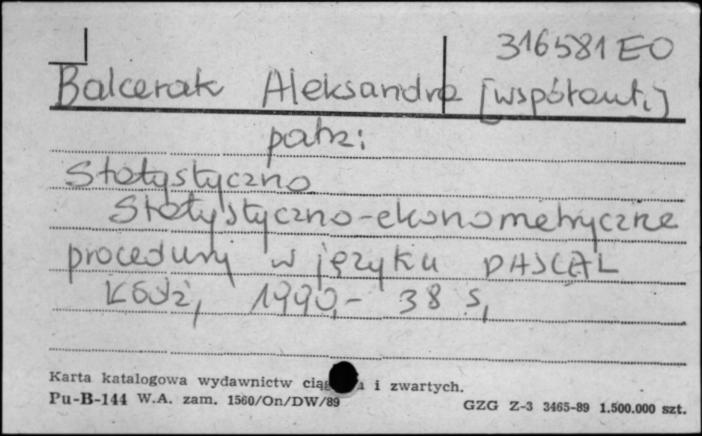 316581 EO
Balcerak Aleksandra [współaut.]
patrz:
Statystyczno
Statystyczno-ekonometryczne
procedury w języku PASCAL
Łódź, 1990,- 38 s,
Karta katalogowa wydawnictw i zwartych.
Pu-B-144 W.A. zam. 1560/On/DW/89
GZG Z-3 3465-89 1.500.000 szt.